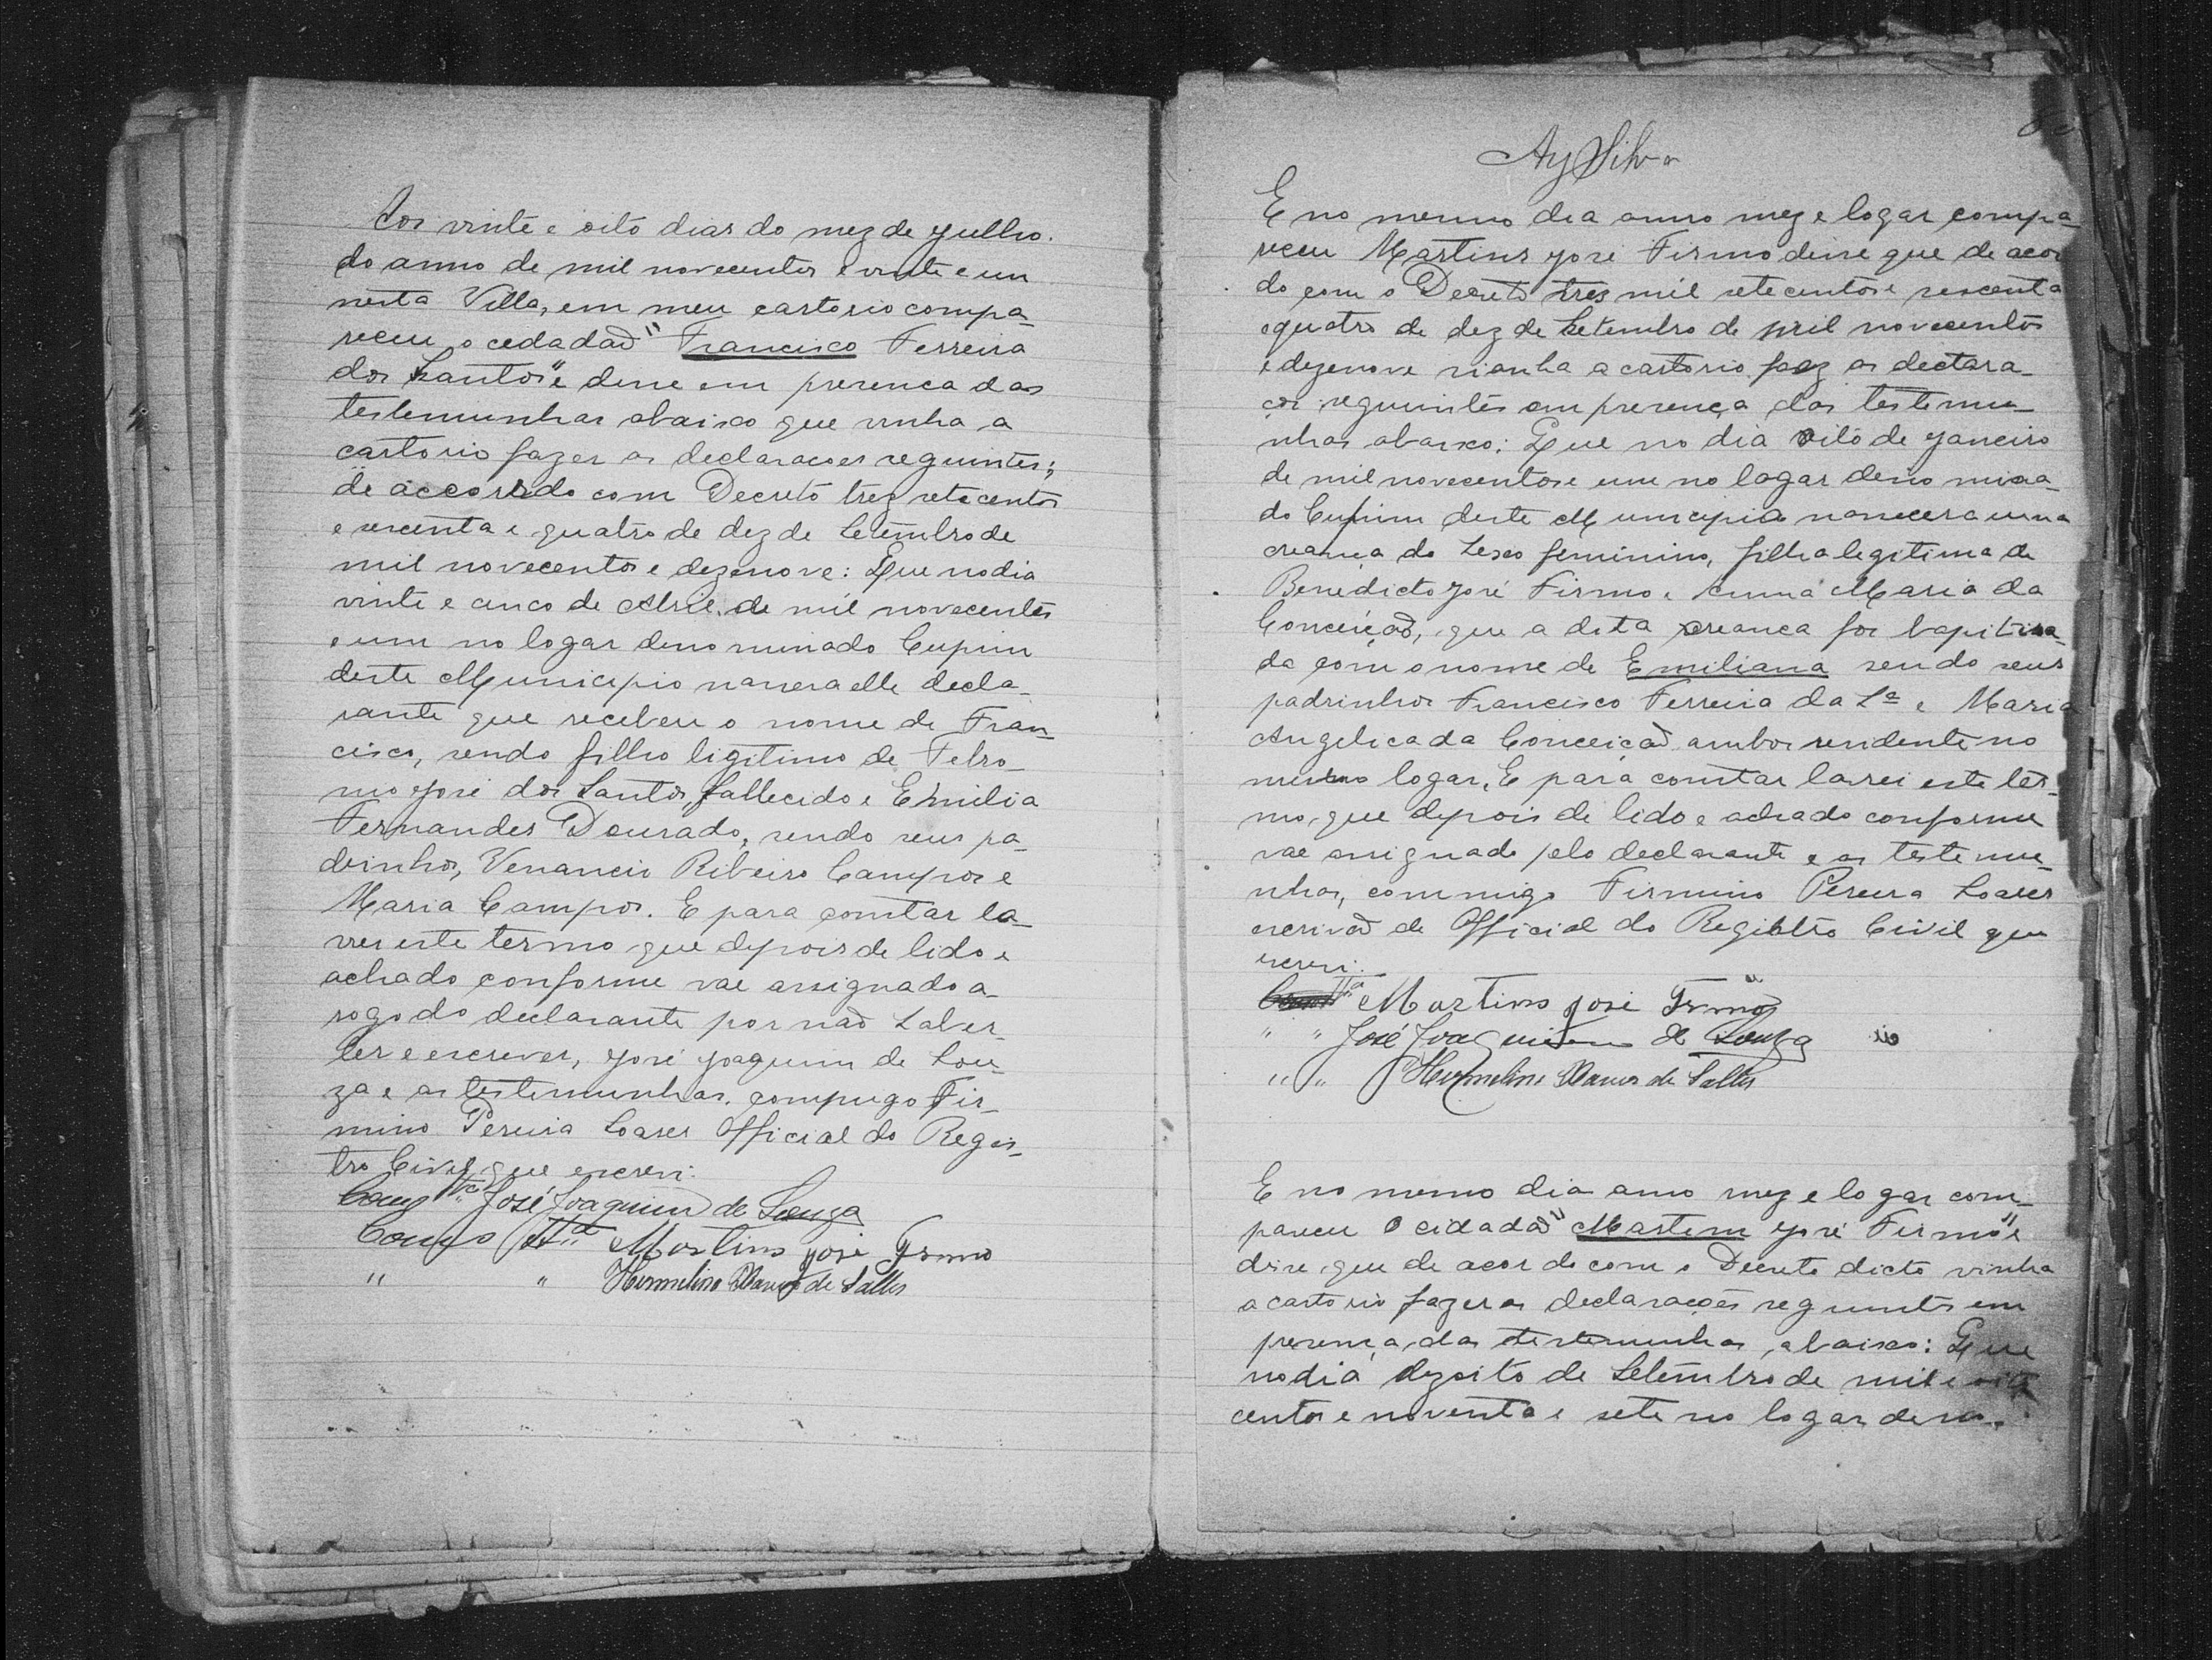 Aos vinte e oito dias do mez de Julho.
do anno de mil novecentos e vinte e um
nesta Villa, em meu cartorio compa-
receu o cedadaõ "Francisco Ferreira
dos Santos" e disse em presenca das
testemunhas abaixo que vinha a
cartorio fazer as declaracoes seguintes;
de accordo com Decreto trez setecentos
e secenta e quatro de dez de Setembro de
mil novecentos e dezenove: Que no dia
vinte e cinco de Abril de mil novecentos
e um no logar denominado Cupim
deste Municipio nassera elle decla-
rante que recebeu o nome de Fran-
cisco, sendo filho ligitimo de
José dos Santos, fallecido e Emilia
Fernandes Dourado, sendo seus pa-
drinhos, Venancio Ribeiro Campos e
Maria Campos. E para constar la-
vrei este termo que depois de lido e
achado conforme vae assignado a-
rogo do declarante por naõ saber
ler e escrever, José Joaquim de Sou-
za e as testemunhas, commigo Fir-
mino Pereira Soares Official do Regis-
tro Civil que escrevi.
Como tta José Joaquim de Souza
Como tta Martins José Firmo
" " Hermelino de Salles
Ay Silva
E no mesmo dia anno mez e logar compa-
receu Martins José Firmo disse que de acor
do com o Decreto tres mil setecentos e sescenta
e quatro de dez de Setembro de mil novecentos
e dezenove vianha a cartorio faz as declara-
çoi seguintes em presença das testemu-
nhas abaixo: Que no dia oito de Janeiro
de mil novecentos e um no logar denomina-
do Cupim deste Municipia nassecera uma
creança do sexo feminino, filha legitima de
Benedicto José Firmo e Anna Maria da
Conceiçaõ, que a dita creanca foi bapitisa-
da com o nome de Emiliana sendo seus
padrinhos Francisco Ferreira da Sa e Maria
Angelica da Conceiçaõ ambos residente no
mesmo logar. E para constar lavrei este ter-
mo, que depois de lido e achado conforme
vae assignado pelo declarante e as testemu-
nhas, commigo Firmino Pereira Soares
escrivaõ de Official do Registro Civil que
escrevi.
Martins José Firmo
" " José Joaquim de Souza
" " Hermelino de Salles
E no mesmo dia anno mez e logar com-
pareceu o cidadaõ "Martim José Firmo" e
disse que de acordo com o Decreto dicto vinha
a cartorio fazer as declaraçoes seguintes em
presença das testemunhas abaixo: Que
no dia dezoito de Setembro de mil e oito
centos e noventa e sete no logar deno-